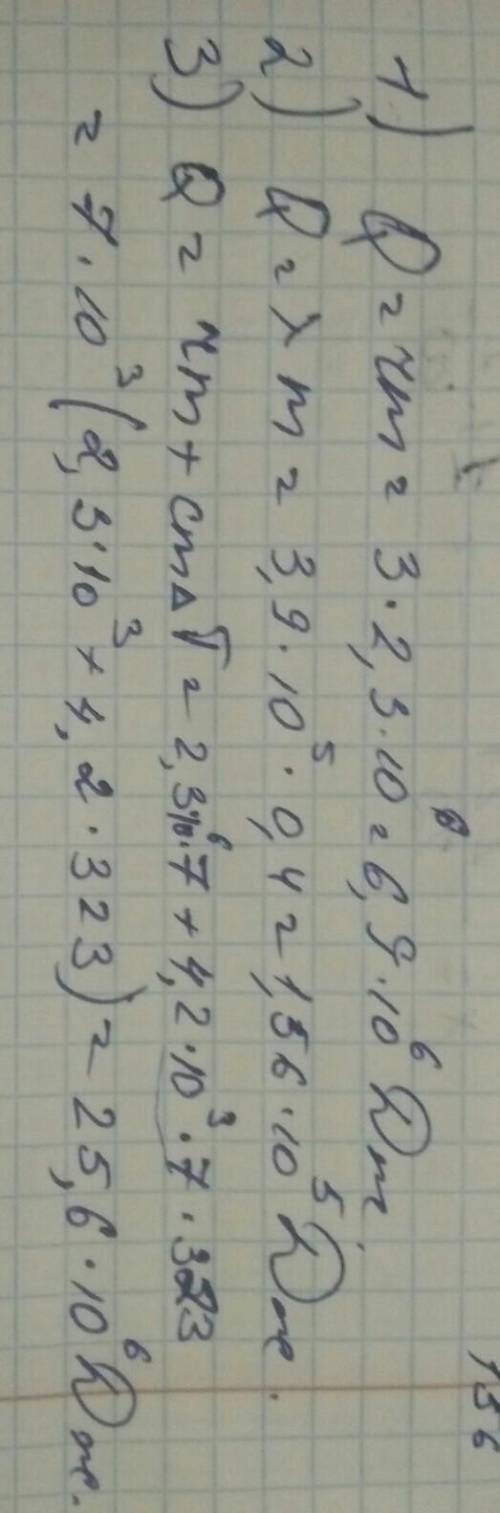 156
1) Q = rm = 3·2,3·10⁶ = 6,9·10⁶ Дж.
2) Q = λm = 3,9·10⁵·0,4 = 1,56·10⁵ Дж.
3) Q = rm + cmΔT = 2,3·10⁶·7 + 4,2·10³·7·323
= 7·10³(2,3·10³ + 4,2·323) = 25,6·10⁶ Дж.